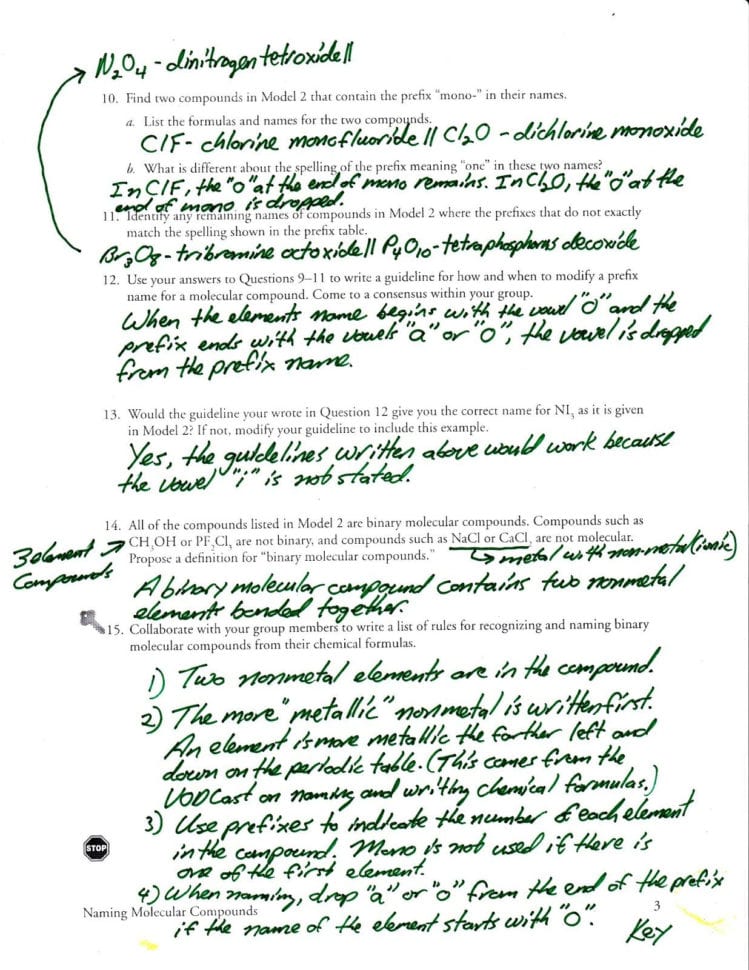 N₂O₄ - dinitrogen tetroxide //
10. Find two compounds in Model 2 that contain the prefix “mono-” in their names.
a. List the formulas and names for the two compounds.
ClF - chlorine monofluoride // Cl₂O - dichlorine monoxide
b. What is different about the spelling of the prefix meaning “one” in these two names?
In ClF, the "o" at the end of mono remains. In Cl₂O, the "o" at the
end of mono is dropped.
11. Identify any remaining names of compounds in Model 2 where the prefixes that do not exactly
match the spelling shown in the prefix table.
Br₃O₈ - tribromine octoxide // P₄O₁₀ - tetraphosphorus decoxide
12. Use your answers to Questions 9–11 to write a guideline for how and when to modify a prefix
name for a molecular compound. Come to a consensus within your group.
When the elements name begins with the vowel "O" and the
prefix ends with the vowels "a" or "o", the vowel is dropped
from the prefix name.
13. Would the guideline your wrote in Question 12 give you the correct name for NI₃ as it is given
in Model 2? If not, modify your guideline to include this example.
Yes, the guidelines written above would work because
the vowel "i" is not stated.
14. All of the compounds listed in Model 2 are binary molecular compounds. Compounds such as
3 element → CH₃OH or PF₃Cl₂ are not binary, and compounds such as NaCl or CaCl₂ are not molecular.
Compounds Propose a definition for “binary molecular compounds.” ↳ metal with non-metal (ionic)
A binary molecular compound contains two nonmetal
elements bonded together.
15. Collaborate with your group members to write a list of rules for recognizing and naming binary
molecular compounds from their chemical formulas.
1) Two nonmetal elements are in the compound.
2) The more "metallic" nonmetal is written first.
An element is more metallic the farther left and
down on the periodic table. (This comes from the
VODCast on naming and writing chemical formulas.)
3) Use prefixes to indicate the number of each element
STOP
in the compound. Mono is not used if there is
one of the first element.
4) When naming, drop "a" or "o" from the end of the prefix
Naming Molecular Compounds 3
if the name of the element starts with "O".
Key